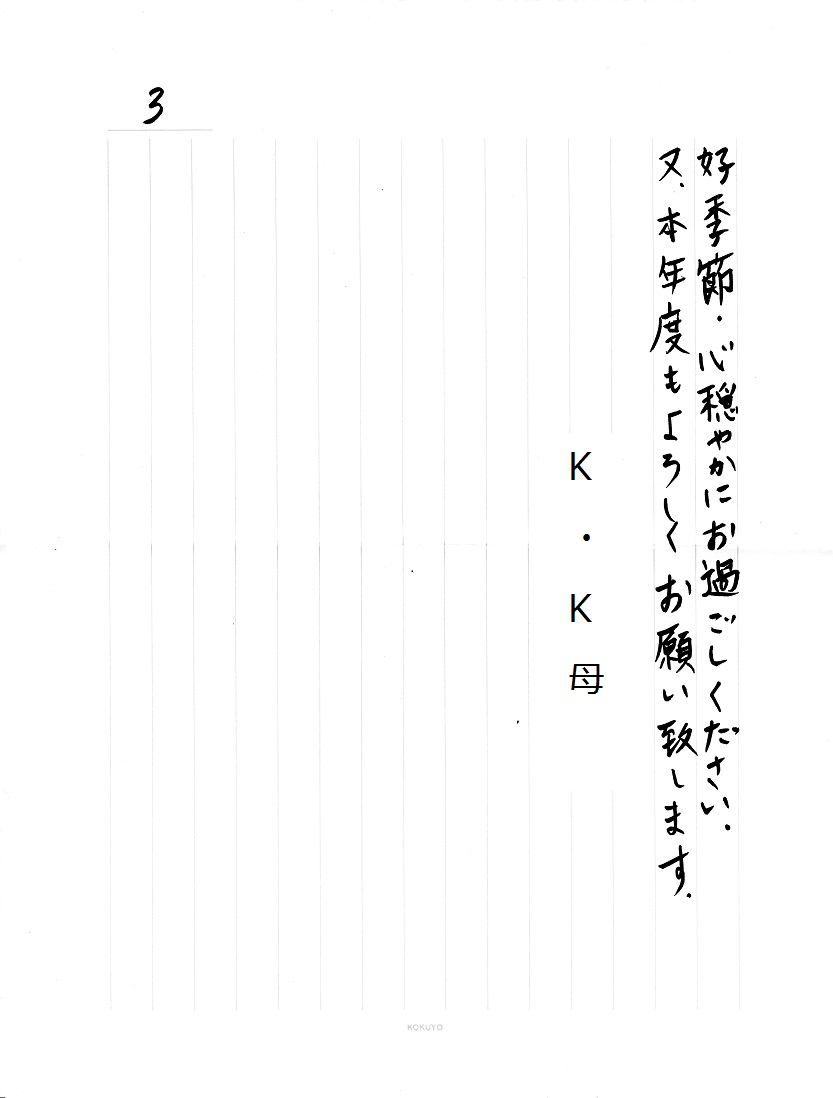 3
好季節、心穏やかにお過ごしください。
又、本年度もよろしくお願い致します。
K・K母
KOKUYO